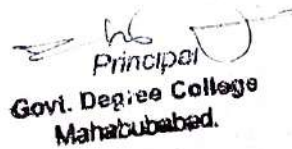 Principal
Govt. Degree College
Mahabubabad.